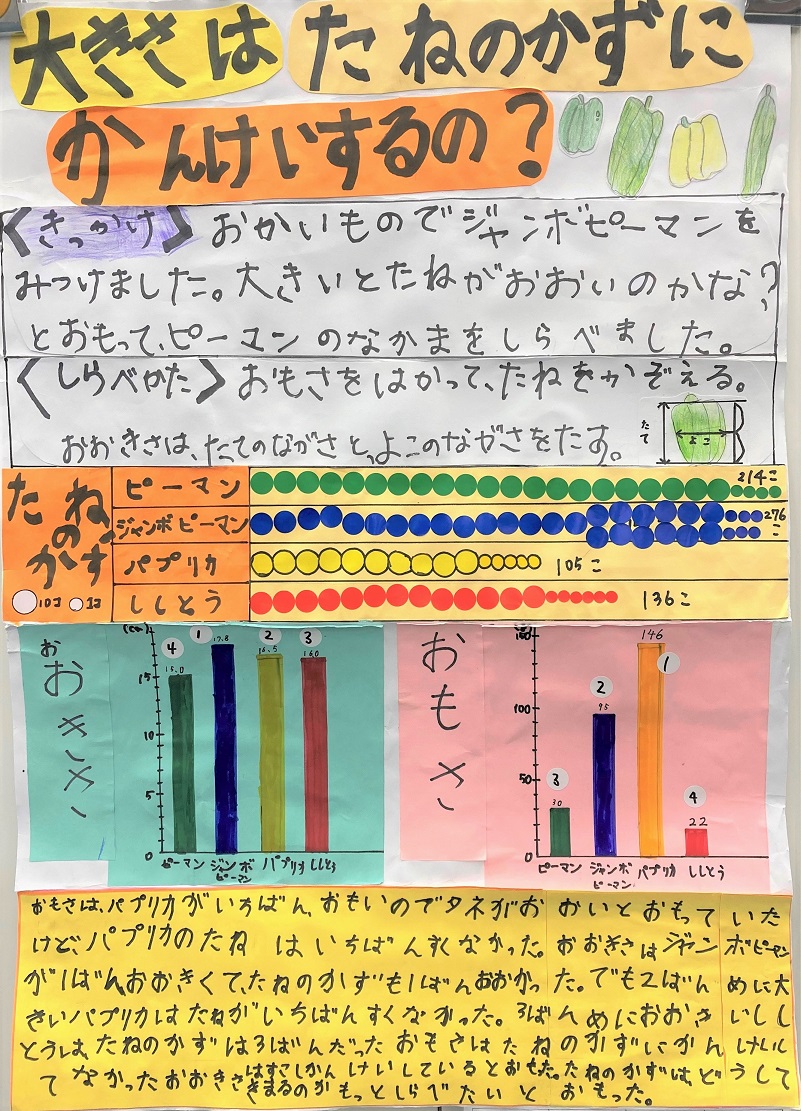 大きさは たねのかずに
かんけいするの？
〈きっかけ〉おかいものでジャンボピーマンを
みつけました。大きいとたねがおおいのかな？
とおもって、ピーマンのなかまをしらべました。
〈しらべかた〉おもさをはかって、たねをかぞえる。
おおきさは、たてのながさと、よこのながさをたす。
たて
よこ
たねのかず
10コ 1コ
ピーマン 214こ
ジャンボピーマン 276こ
パプリカ 105こ
ししとう 136こ
おおきさ
(cm)
15
10
5
0
4 1 2 3
15.0 17.8 16.5 16.0
ピーマン ジャンボピーマン パプリカ ししとう
おもさ
150
100
50
0
3 2 1 4
30 95 146 22
ピーマン ジャンボピーマン パプリカ ししとう
おもさは、パプリカがいちばん、おもいのでタネがおおいとおもっていた
けど、パプリカのたねはいちばんすくなかった。おおきさはジャンボピーマン
が1ばんおおきくて、たねのかずも1ばんおおかった。でも2ばんめに大
きいパプリカはたねがいちばんすくなかった。3ばんめにおおきいしし
とうは、たねのかずは3ばんだった おもさはたねのかずにかんけいし
てなかったおおきさはすこしかんけいしているとおもった。たねのかずは、どうして
きまるのかもっとしらべたいとおもった。